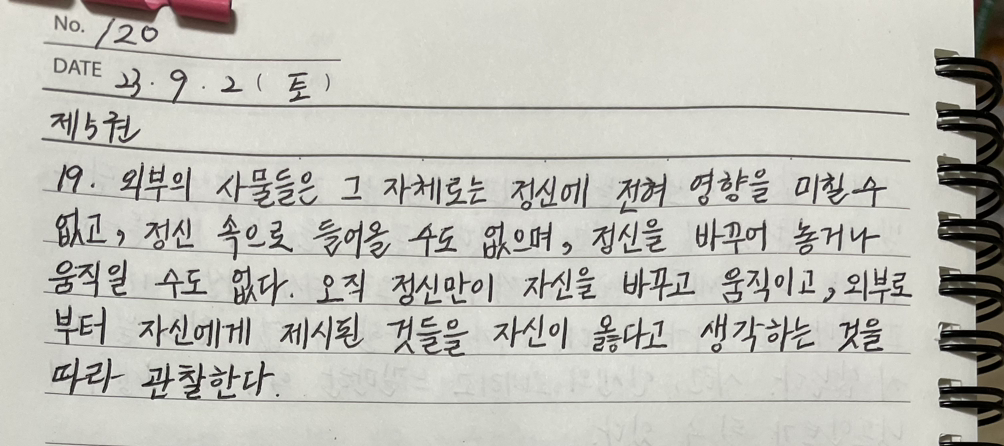 No. 120
DATE 23. 9. 2 ( 토 )
제5권
19. 외부의 사물들은 그 자체로는 정신에 전혀 영향을 미칠 수
없고, 정신 속으로 들어올 수도 없으며, 정신을 바꾸어 놓거나
움직일 수도 없다. 오직 정신만이 자신을 바꾸고 움직이고, 외부로
부터 자신에게 제시된 것들을 자신이 옳다고 생각하는 것을
따라 관찰한다.